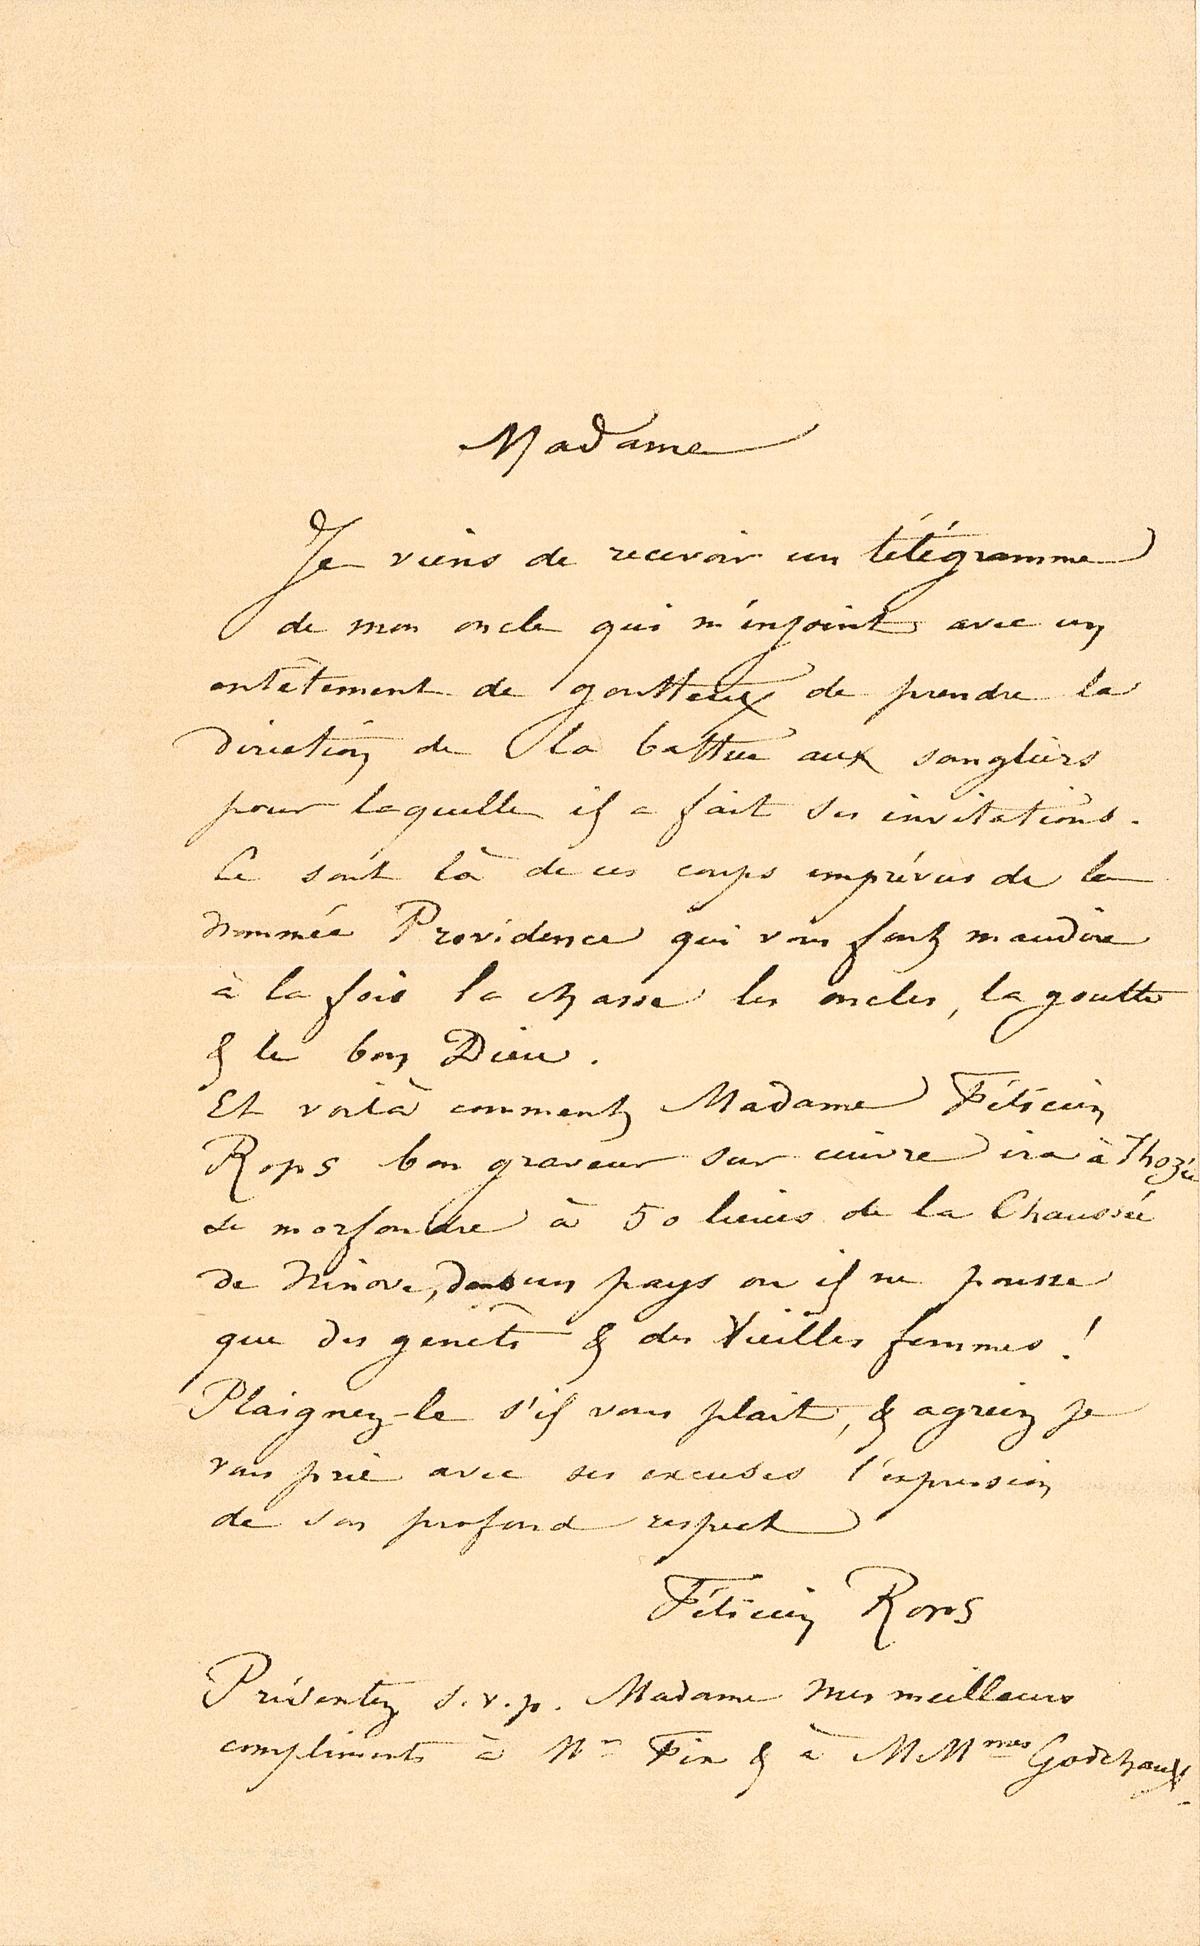 Madame
Je viens de recevoir un télégramme
de mon oncle qui m'enjoint avec un
entêtement de goutteux de prendre la
direction de la battue aux sangliers
pour laquelle il a fait ses invitations.
Ce sont là de ces coups imprévus de la
nommée Providence qui vous font maudire
à la fois la chasse les oncles, la goutte
& le bon Dieu.
Et voilà comment Madame Félicien
Rops bon graveur sur cuivre ira à Thozée
se morfondre à 50 lieues de la Chaussée
de Ninove, dans un pays ou il ne pousse
que des genêts & des vieilles femmes !
Plaignez-le s'il vous plait, & agréez je
vous prie avec ses excuses l'expression
de son profond respect
Félicien Rops
Présentez s.v.p. Madame mes meilleurs
compliments à Fix & à MMmes Godchaux.